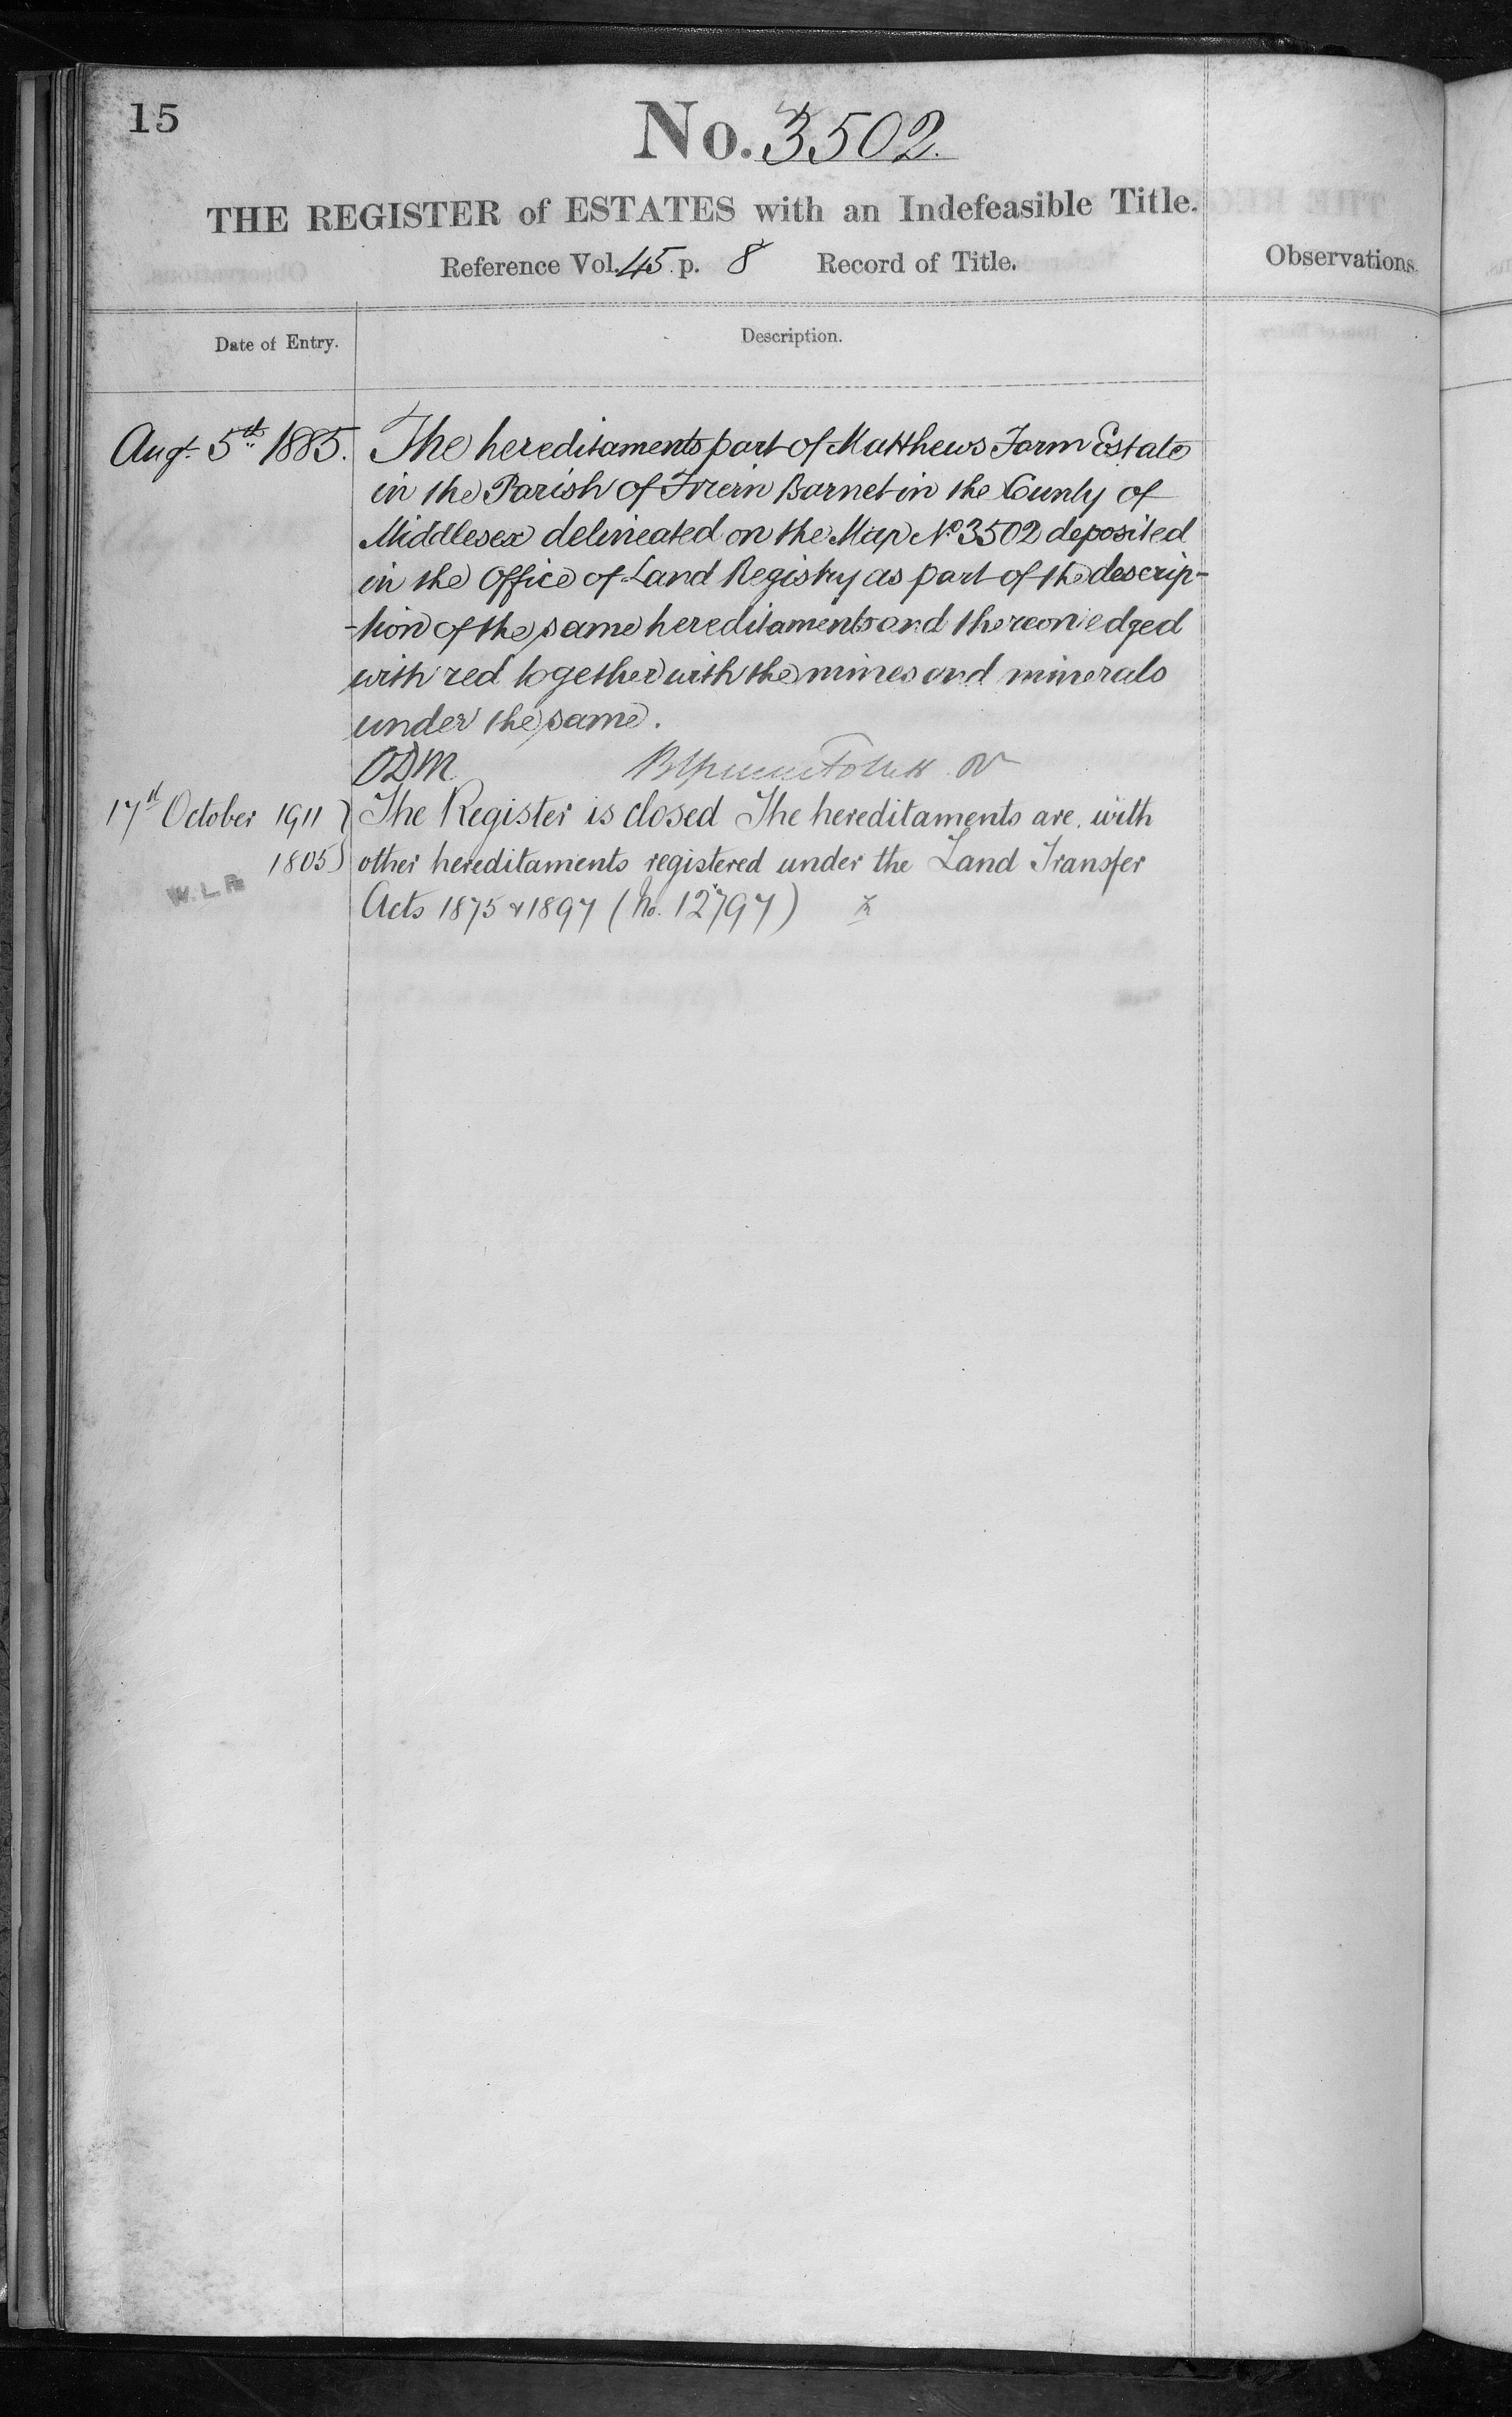 15
No. 3502.
THE REGISTER of ESTATES with an Indefeasible Title.
Reference Vol. 45. p. 8 Record of Title.
Observations.
Date of Entry.
Description.
Augt. 5th 1885. The hereditaments part of Matthews Farm Estate
in the Parish of Friern Barnet in the County of
Middlesex delineated on the Map No. 3502 deposited
in the Office of Land Registry as part of the descrip-
-tion of the same hereditaments and thereon edged
with red together with the mines and minerals
under the same.
ODM
17th October 1911 } The Register is closed The hereditaments are with
1805 } other hereditaments registered under the Land Transfer
W.L.R. Acts 1875 & 1897 (No. 12797)